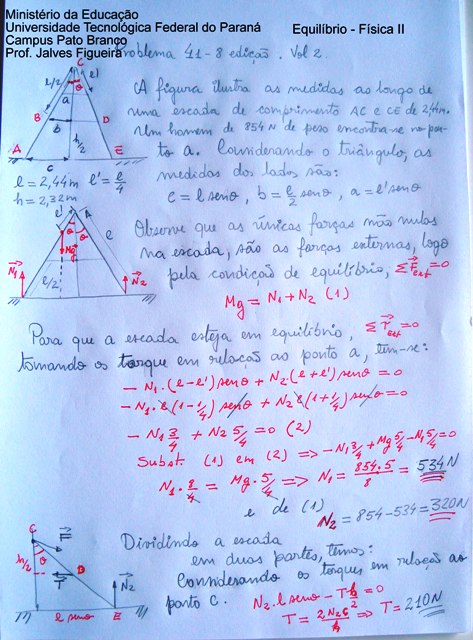 Ministério da Educação
Universidade Tecnológica Federal do Paraná
Equilíbrio - Física II
Campus Pato Branco
Prof. Jalves Figueira
Problema 41 - 8 edição. Vol 2.
A figura ilustra as medidas ao longo de
uma escada de comprimento AC e CE de 2,44m.
Um homem de 854 N de peso encontra-se no pon-
to a. Considerando o triângulo, as
medidas dos lados são:
c = l senθ, b = l/2 senθ, a = l' senθ
l/2
C
l'
θ
a
B
b
D
h/2
A
c
E
l = 2,44m l' = l/4
h = 2,32m
Observe que as únicas forças não nulas
na escada, são as forças externas, logo
pela condição de equilíbrio, ΣF⃗ext = 0
Mg = N1 + N2 (1)
l'
A
θ
θ
l
Mg
N⃗1
l/2
N⃗2
Para que a escada esteja em equilíbrio, Στ⃗ext = 0
tomando os torque em relação ao ponto a, tem-se:
- N1.(l-l') senθ + N2.(l+l') senθ = 0
- N1.l(1-1/4) senθ + N2 l(1+1/4) senθ = 0
- N1 3/4 + N2 5/4 = 0 (2)
Subst. (1) em (2) => -N1 3/4 + Mg 5/4 - N1 5/4 = 0
N1.8/4 = Mg.5/4 => N1 = 854.5/8 = 534N
e de (1)
N2 = 854-534 = 320N
Dividindo a escada
em duas partes, temos:
Considerando os torques em relação ao
ponto C. N2.l senθ - T h/2 = 0
T = 2N2c/h => T = 210N
C
θ
h/2
T⃗
D
N⃗2
l senθ
E